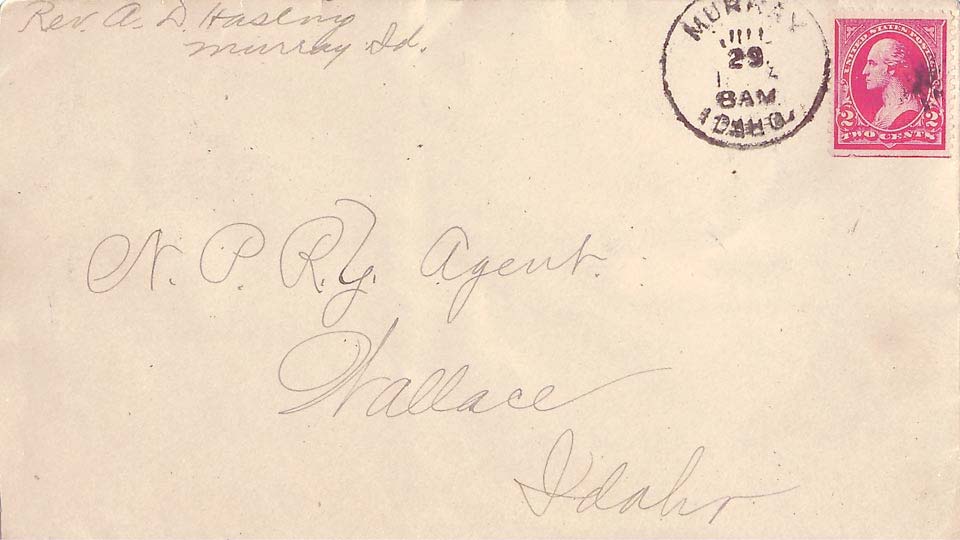 Rev. A. D.
Murray Id.
MURRAY
29
8AM
IDAHO.
UNITED STATES POSTAGE
2 2
TWO CENTS
N. P. R.y. Agent.
Wallace
Idaho